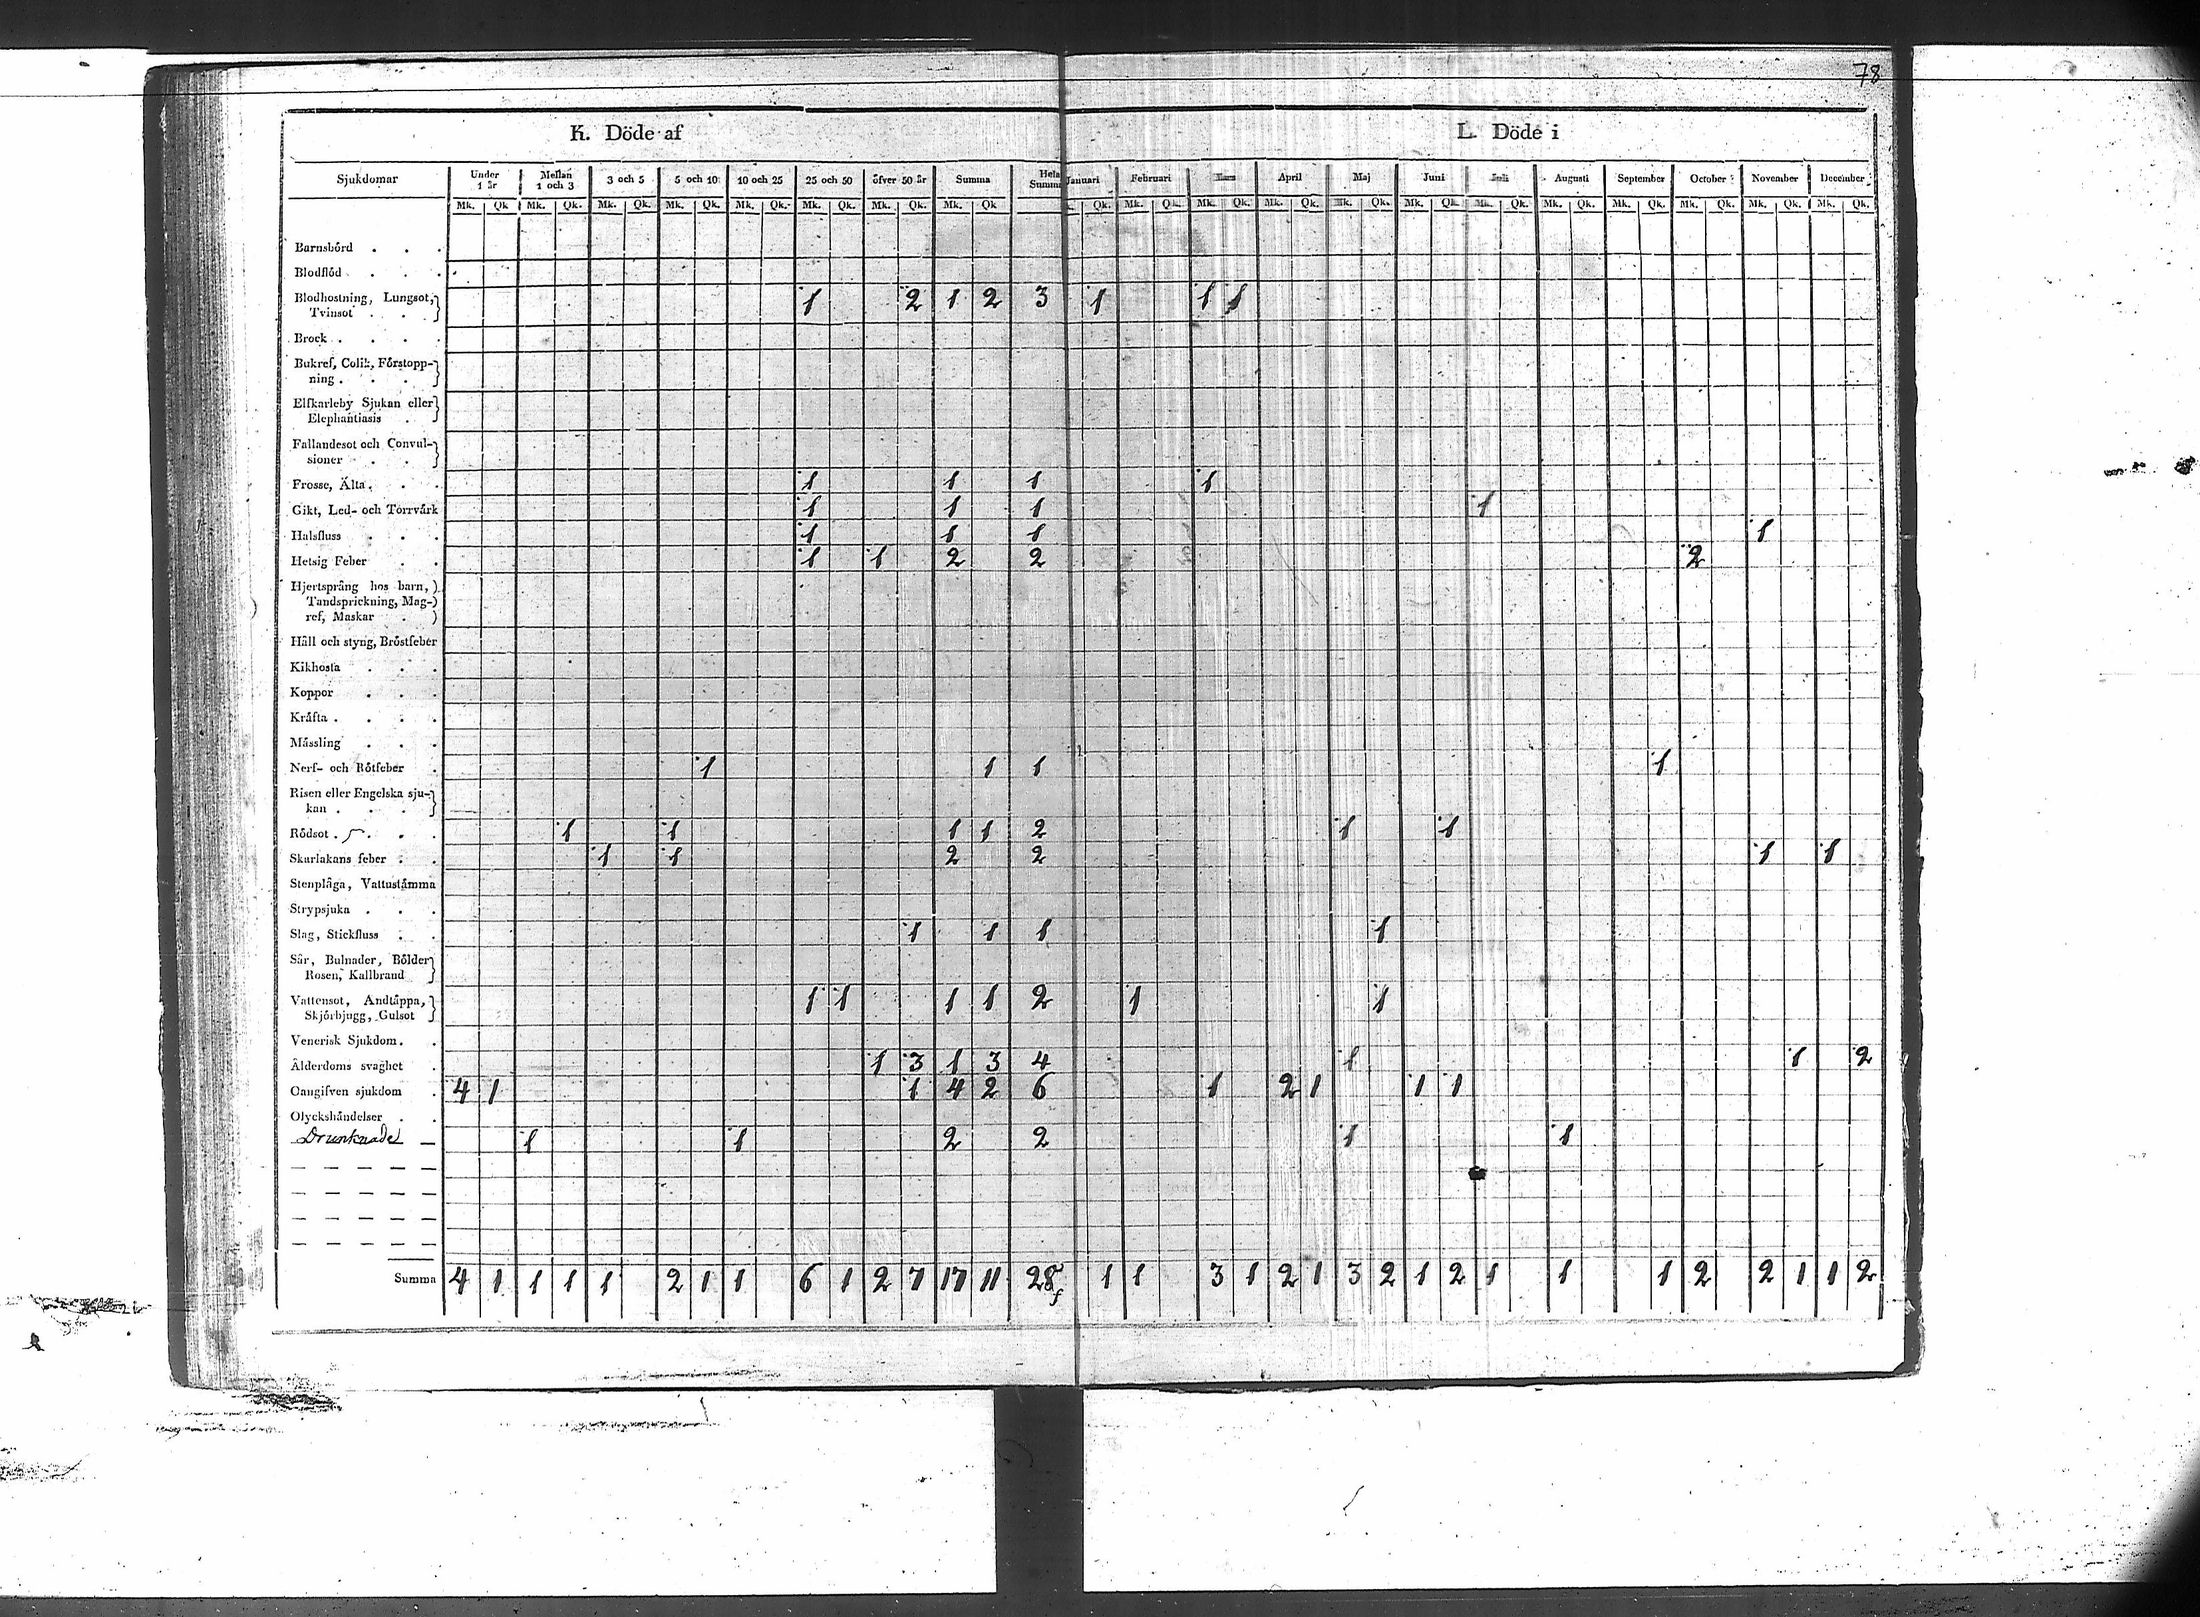 78
K. Döde af
L. Döde i
Sjukdomar Under 1 år Mellan 1 och 3 3 och 5 5 och 10 10 och 25 25 och 50 öfver 50 år Summa Hela Summa Januari Februari Mars April Maj Juni Juli Augusti September October November December
Mk. Qk Mk. Qk. Mk. Qk. Mk. Qk. Mk. Qk. Mk. Qk. Mk. Qk. Mk. Qk Qk. Mk. Qk. Mk. Qk. Mk. Qk. Mk. Qk. Mk. Qk. Mk. Qk. Mk. Qk. Mk. Qk. Mk. Qk. Mk. Qk. Mk. Qk.
Barnsbörd . . .
Blodflöd . . .
Blodhostning, Lungsot, 1 2 1 2 3 1 1 1
Tvinsot . . .
Brock . . . .
Bukref, Colik, Förstopp-
ning . . .
Elfkarleby Sjukan eller
Elephantiasis .
Fallandesot och Convul-
sioner . .
Frosse, Älta . . . 1 1 1 1
Gikt, Led- och Torrvärk 1 1 1 1
Halsfluss . . . 1 1 1 1
Hetsig Feber . . 1 1 2 2 2
Hjertsprång hos barn,
Tandsprickning, Mag-
ref, Maskar .
Håll och styng, Bröstfeber
Kikhosta . . .
Koppor . . .
Kräfta . . . .
Mässling . . .
Nerf- och Rötfeber . 1 1 1 1
Risen eller Engelska sju-
kan . . . .
Rödsot . . . 1 1 1 1 2 1 1
Skarlakans feber . . 1 1 2 2 1 1
Stenplåga, Vattustämma
Strypsjuka . . .
Slag, Stickfluss . . 1 1 1 1
Sår, Bulnader, Bölder
Rosen, Kallbrand
Vattensot, Andtäppa, 1 1 1 1 2 1 1
Skjörbjugg, Gulsot
Venerisk Sjukdom . .
Ålderdoms svaghet . 1 3 1 3 4 1 1 2
Oangifven sjukdom . 4 1 1 4 2 6 1 2 1 1 1
Olyckshändelser . .
Drunknade — 1 1 2 2 1 1
— — — — —
— — — — —
— — — — —
— — — — —
Summa 4 1 1 1 1 2 1 1 6 1 2 7 17 11 28 1 1 3 1 2 1 3 2 1 2 1 1 1 2 2 1 1 2